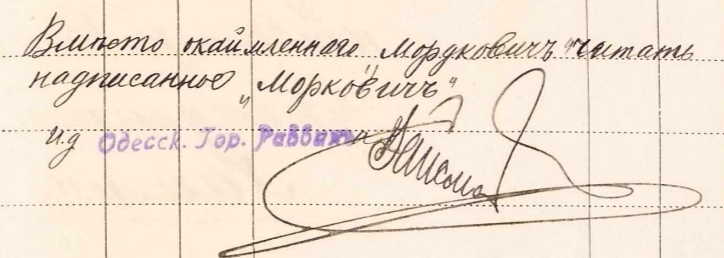 Вмѣсто окаймленнаго "Мордковичъ" читать
надписанное „Морковичъ"
и.д Одесск. Гор. Раввин